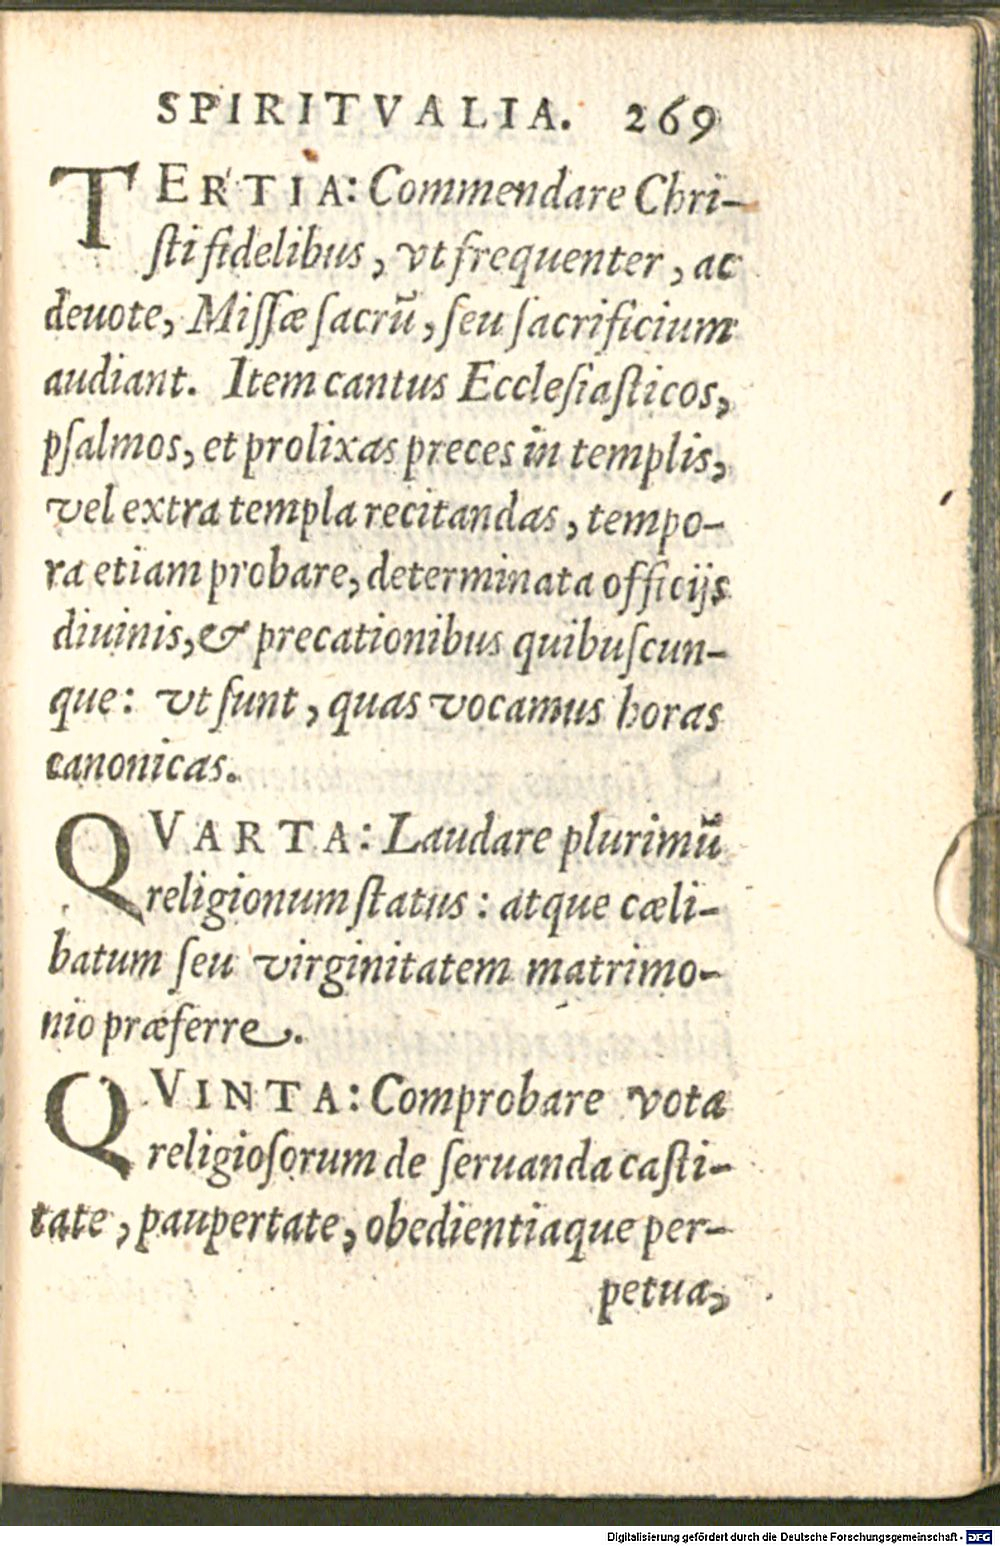 SPIRITVALIA. 269
TERTIA: Commendare Chri-
ſti fidelibus, vt frequenter, ac
deuote, Miſſæ ſacrũ, ſeu ſacrificium
audiant. Item cantus Eccleſiaſticos,
pſalmos, et prolixas preces in templis,
vel extra templa recitandas, tempo-
ra etiam probare, determinata officijs
diuinis, & precationibus quibuſcun-
que: vt ſunt, quas vocamus horas
canonicas.
QVARTA: Laudare plurimũ
religionum ſtatus: atque cæli-
batum ſeu virginitatem matrimo-
nio præferre.
QVINTA: Comprobare vota
religioſorum de ſeruanda caſti-
tate, paupertate, obedientiaque per-
petua,
Digitalisierung gefördert durch die Deutsche Forschungsgemeinschaft - DFG